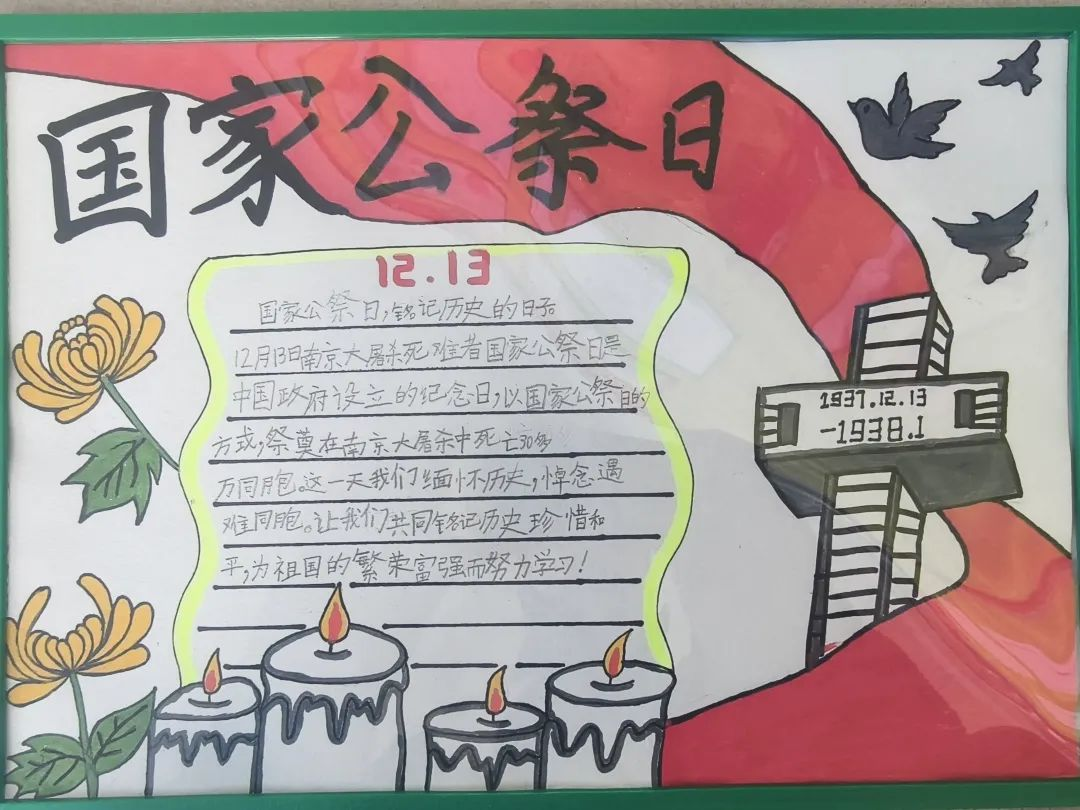 国家公祭日
12.13
国家公祭日，铭记历史的日子。
12月13日南京大屠杀死难者国家公祭日是
中国政府设立的纪念日，以国家公祭日的
方式，祭奠在南京大屠杀中死亡30多
万同胞。这一天我们缅怀历史，悼念遇
难同胞。让我们共同铭记历史珍惜和
平，为祖国的繁荣富强而努力学习！
1937.12.13
-1938.1